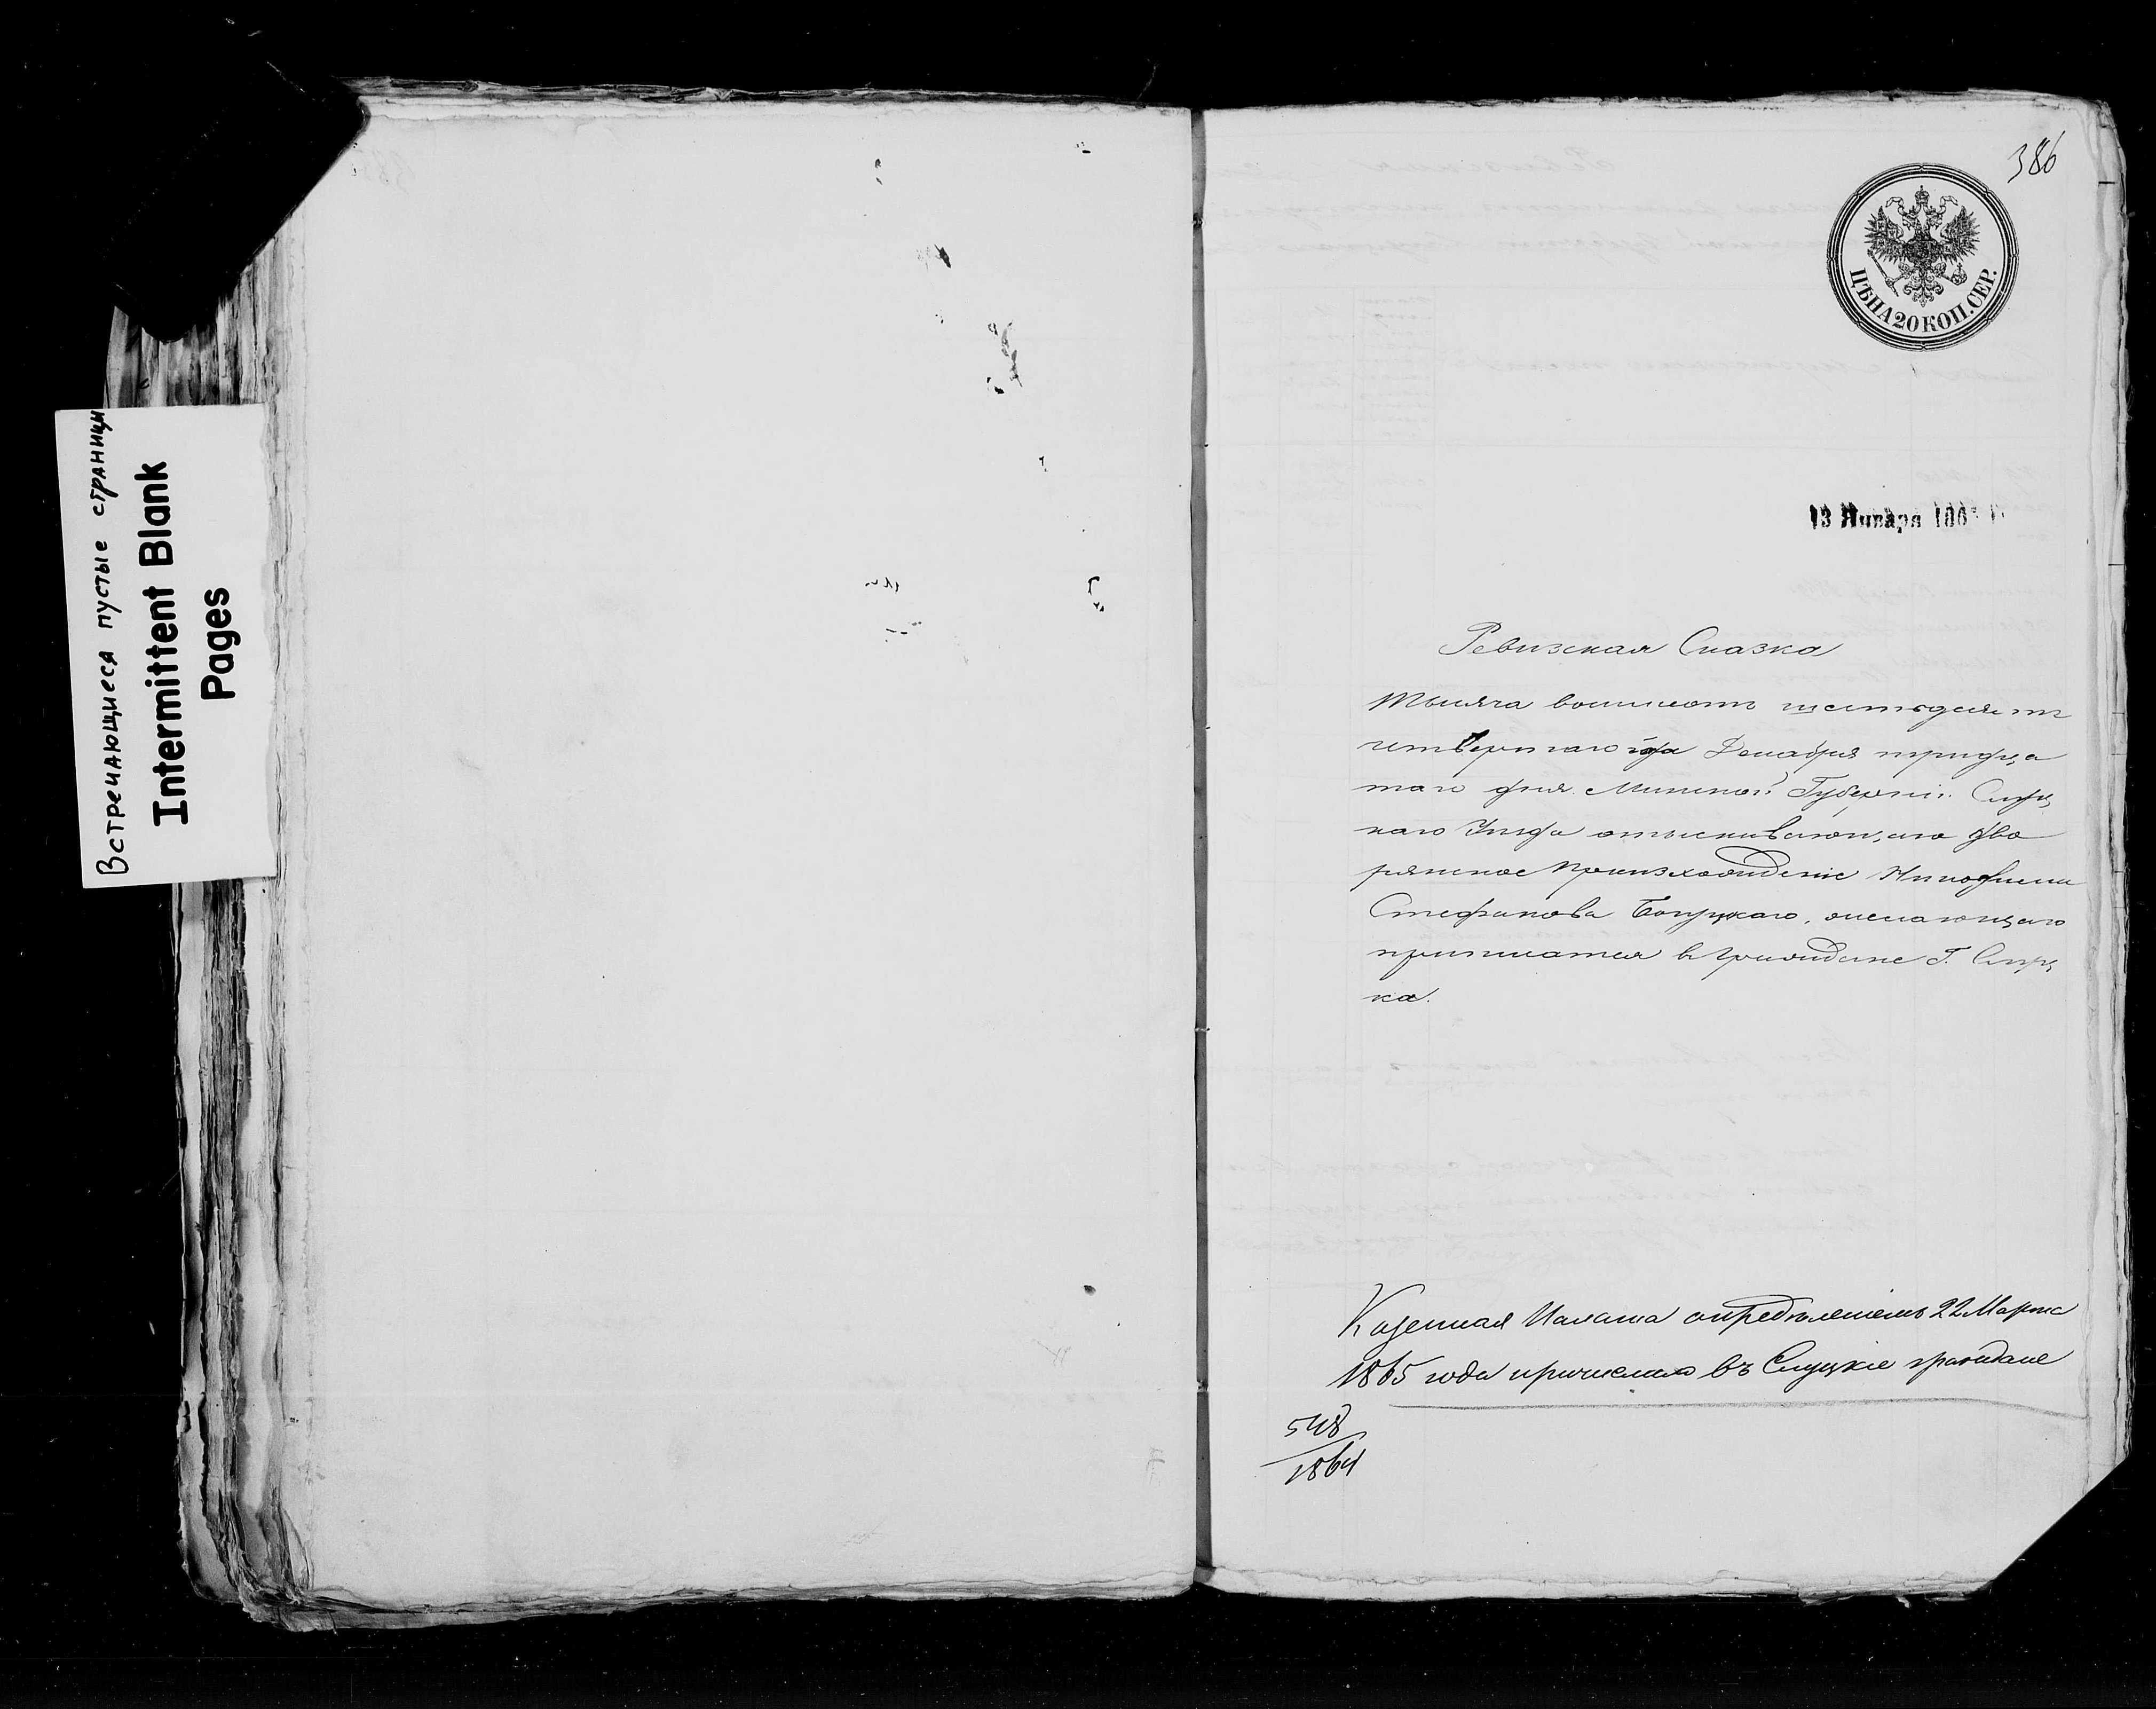 Встречающиеся пустые страници
Intermittent Blank
Pages
386
ЦѢНА 20 КОП. СЕР.
13 Января 186
Ревизская Сказка
Тысяча восимсотъ шестьдесятъ
четвертаго года Декабря тридца
таго дня Минской Губерніи Слуц
каго Уѣзда отыскивающаго дво
рянское произхожденіе Никодима
Стефанова, желающаго
приписатся в граждане Г. Слуц
ка.
Казенная Палата опредѣленіемъ 22 Марта
1865 года причислила въ Слуцкіе граждане
548
1864